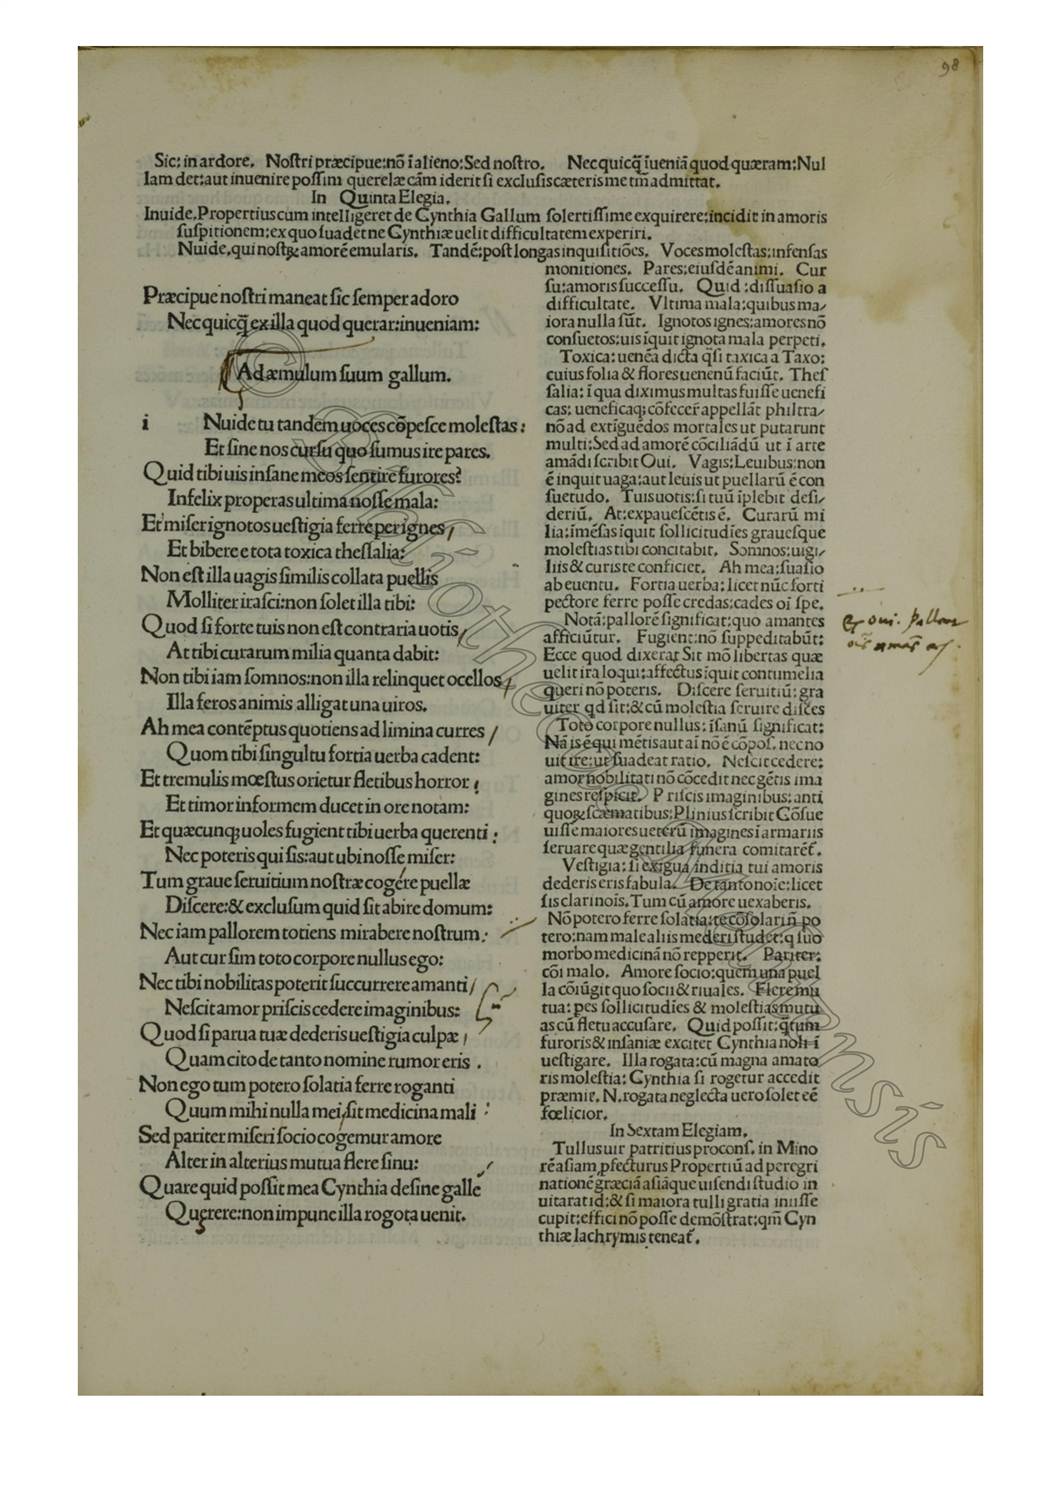 98
Sic: in ardore. Nostri præcipue: nõ ĩ alieno: Sed nostro. Nec quicq̃ ĩueniã quod quæram: Nul
lam det: aut inuenire possim querelæ cãm iderit si exclusis cæteris me tm̃ admittat.
In Quinta Elegia.
Inuide. Propertius cum intelligeret de Cynthia Gallum solertissime exquirere: incidit in amoris
suspitionem: ex quo suadet ne Cynthiæ uelit difficultatem experiri.
Nuide, qui nostꝝ amorẽ emularis. Tandẽ: post longas inquisitiões. Voces molestas: infensas
monitiones. Pares: eiusdẽ animi. Cur
su: amoris successu. Quid: dissuasio a
difficultate. Vltima mala: quibus ma/
iora nulla sũt. Ignotos ignes: amores nõ
consuetos: uis iquit ignota mala perpeti.
Toxica: uenẽa dicta q̃si taxica a Taxo:
cuius folia & flores uenenũ faciũt. Thes
salia: ĩ qua diximus multas fuisse uenefi
cas: ueneficaq; cõfecer̃ appellãt philtra/
nõ ad extiguẽdos mortales ut putarunt
multi: Sed ad amorẽ cõciliãdũ ut ĩ arte
amãdi scribit Oui. Vagis: Leuibus: non
ẽ inquit uaga: aut leuis ut puellarũ ẽ con
suetudo. Tuis uotis: si tuũ ĩplebit desi/
deriũ. At: expauescẽtis ẽ. Curarũ mi
lia: ĩmẽsas iquit sollicitudĩes grauesque
molestias tibi concitabit. Somnos: uigi/
liis & curis te conficiet. Ah mea: suasio
ab euentu. Fortia uerba: licet nũc forti
pectore ferre posse credas: cades oi spe.
Notã: pallorẽ significat: quo amantes
afficiũtur. Fugient: nõ suppeditabũt:
Ecce quod dixerat Sit mõ libertas quæ
uelit ira loqui: affectus iquit contumelia
queri nõ poteris. Discere seruitiũ: gra
uiter qd sit: & cũ molestia seruire disces
Toto corpore nullus: ĩsanũ significat:
Nã is ẽ qui mẽtis aut ai nõ ẽ cõpos, nec no
uit ire: ut suadeat ratio. Nescit cedere:
amor nobilitati nõ cõcedit nec gẽtis ima
gines respicit. Priscis imaginibus: anti
quoꝝ scæmatibus: Plinius scribit Cõsue
uisse maiores ueterũ imagines ĩ armariis
seruare quæ gentilia funera comitarẽt.
Vestigia: si exigua inditia tui amoris
dederis eris fabula. De tanto noie: licet
sis clari nois. Tum cũ amore uexaberis.
Nõ potero ferre solatia: te cõsolari nõ po
tero: nam male aliis mederi studet: q suo
morbo medicinã nõ repperit. Pariter:
cõi malo. Amore socio: quem una puel
la cõiũgit quo socii & riuales. Flere mu
tua: pes sollicitudĩes & molestias mutu
as cũ fletu accusare. Quid possit: q̃tum
furoris & insaniæ excitet Cynthia noli ĩ
uestigare. Illa rogata: cũ magna amato
ris molestia: Cynthia si rogetur accedit
præmit. N. rogata neglecta uero solet eẽ
fœlicior.
In Sextam Elegiam.
Tullus uir patritius procons. in Mino
rẽ asiam ꝓfecturus Propertiũ ad peregri
nationẽ græciã asiãque uisendi studio in
uitarat id: & si maiora tulli gratia inisse
cupit: effici nõ posse demõstrat: qm̃ Cyn
thiæ lachrymis teneat.
Præcipue nostri maneat sic semper adoro
Nec quicq̃ ex illa quod querar: inueniam:
Ad æmulum suum gallum.
i Nuide tu tandem uoces cõpesce molestas:
Et sine nos cursu quo sumus ire pares.
Quid tibi uis insane meos sentire furores?
Infelix properas ultima nosse mala:
Et miser ignotos uestigia ferre per ignes/
Et bibere e tota toxica thessalia:
Non est illa uagis similis collata puellis
Molliter irasci: non solet illa tibi:
Quod si forte tuis non est contraria uotis/
At tibi curarum milia quanta dabit:
Non tibi iam somnos: non illa relinquet ocellos/
Illa feros animis alligat una uiros.
Ah mea contẽptus quotiens ad limina curres/
Quom tibi singultu fortia uerba cadent:
Et tremulis mœstus orietur fletibus horror/
Et timor informem ducet in ore notam:
Et quæcunq; uoles fugient tibi uerba querenti:
Nec poteris qui sis: aut ubi nosse miser:
Tum graue seruitium nostræ cogére puellæ
Discere: & exclusum quid sit abire domum:
Nec iam pallorem totiens mirabere nostrum:
Aut cur sim toto corpore nullus ego:
Nec tibi nobilitas poterit succurrere amanti/
Nescit amor priscis cedere imaginibus:
Quod si parua tuæ dederis uestigia culpæ/
Quam cito de tanto nomine rumor eris.
Non ego tum potero solatia ferre roganti
Quum mihi nulla mei/sit medicina mali:
Sed pariter miseri socio cogemur amore
Alter in alterius mutua flere sinu:
Quare quid possit mea Cynthia desine galle
Querere: non impune illa rogota uenit.
© Bibliotheca Estensis